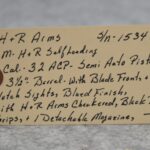 H+R Arms S/n-1534
M-H+R Selfloading
Cal-.32 ACP- Semi Auto Pist
3½" Barrel-With Blade Front, +
Sights, Blued Finish,
ith H+R Arms Checkered, Black
rips, + 1 Detachable Magazine,